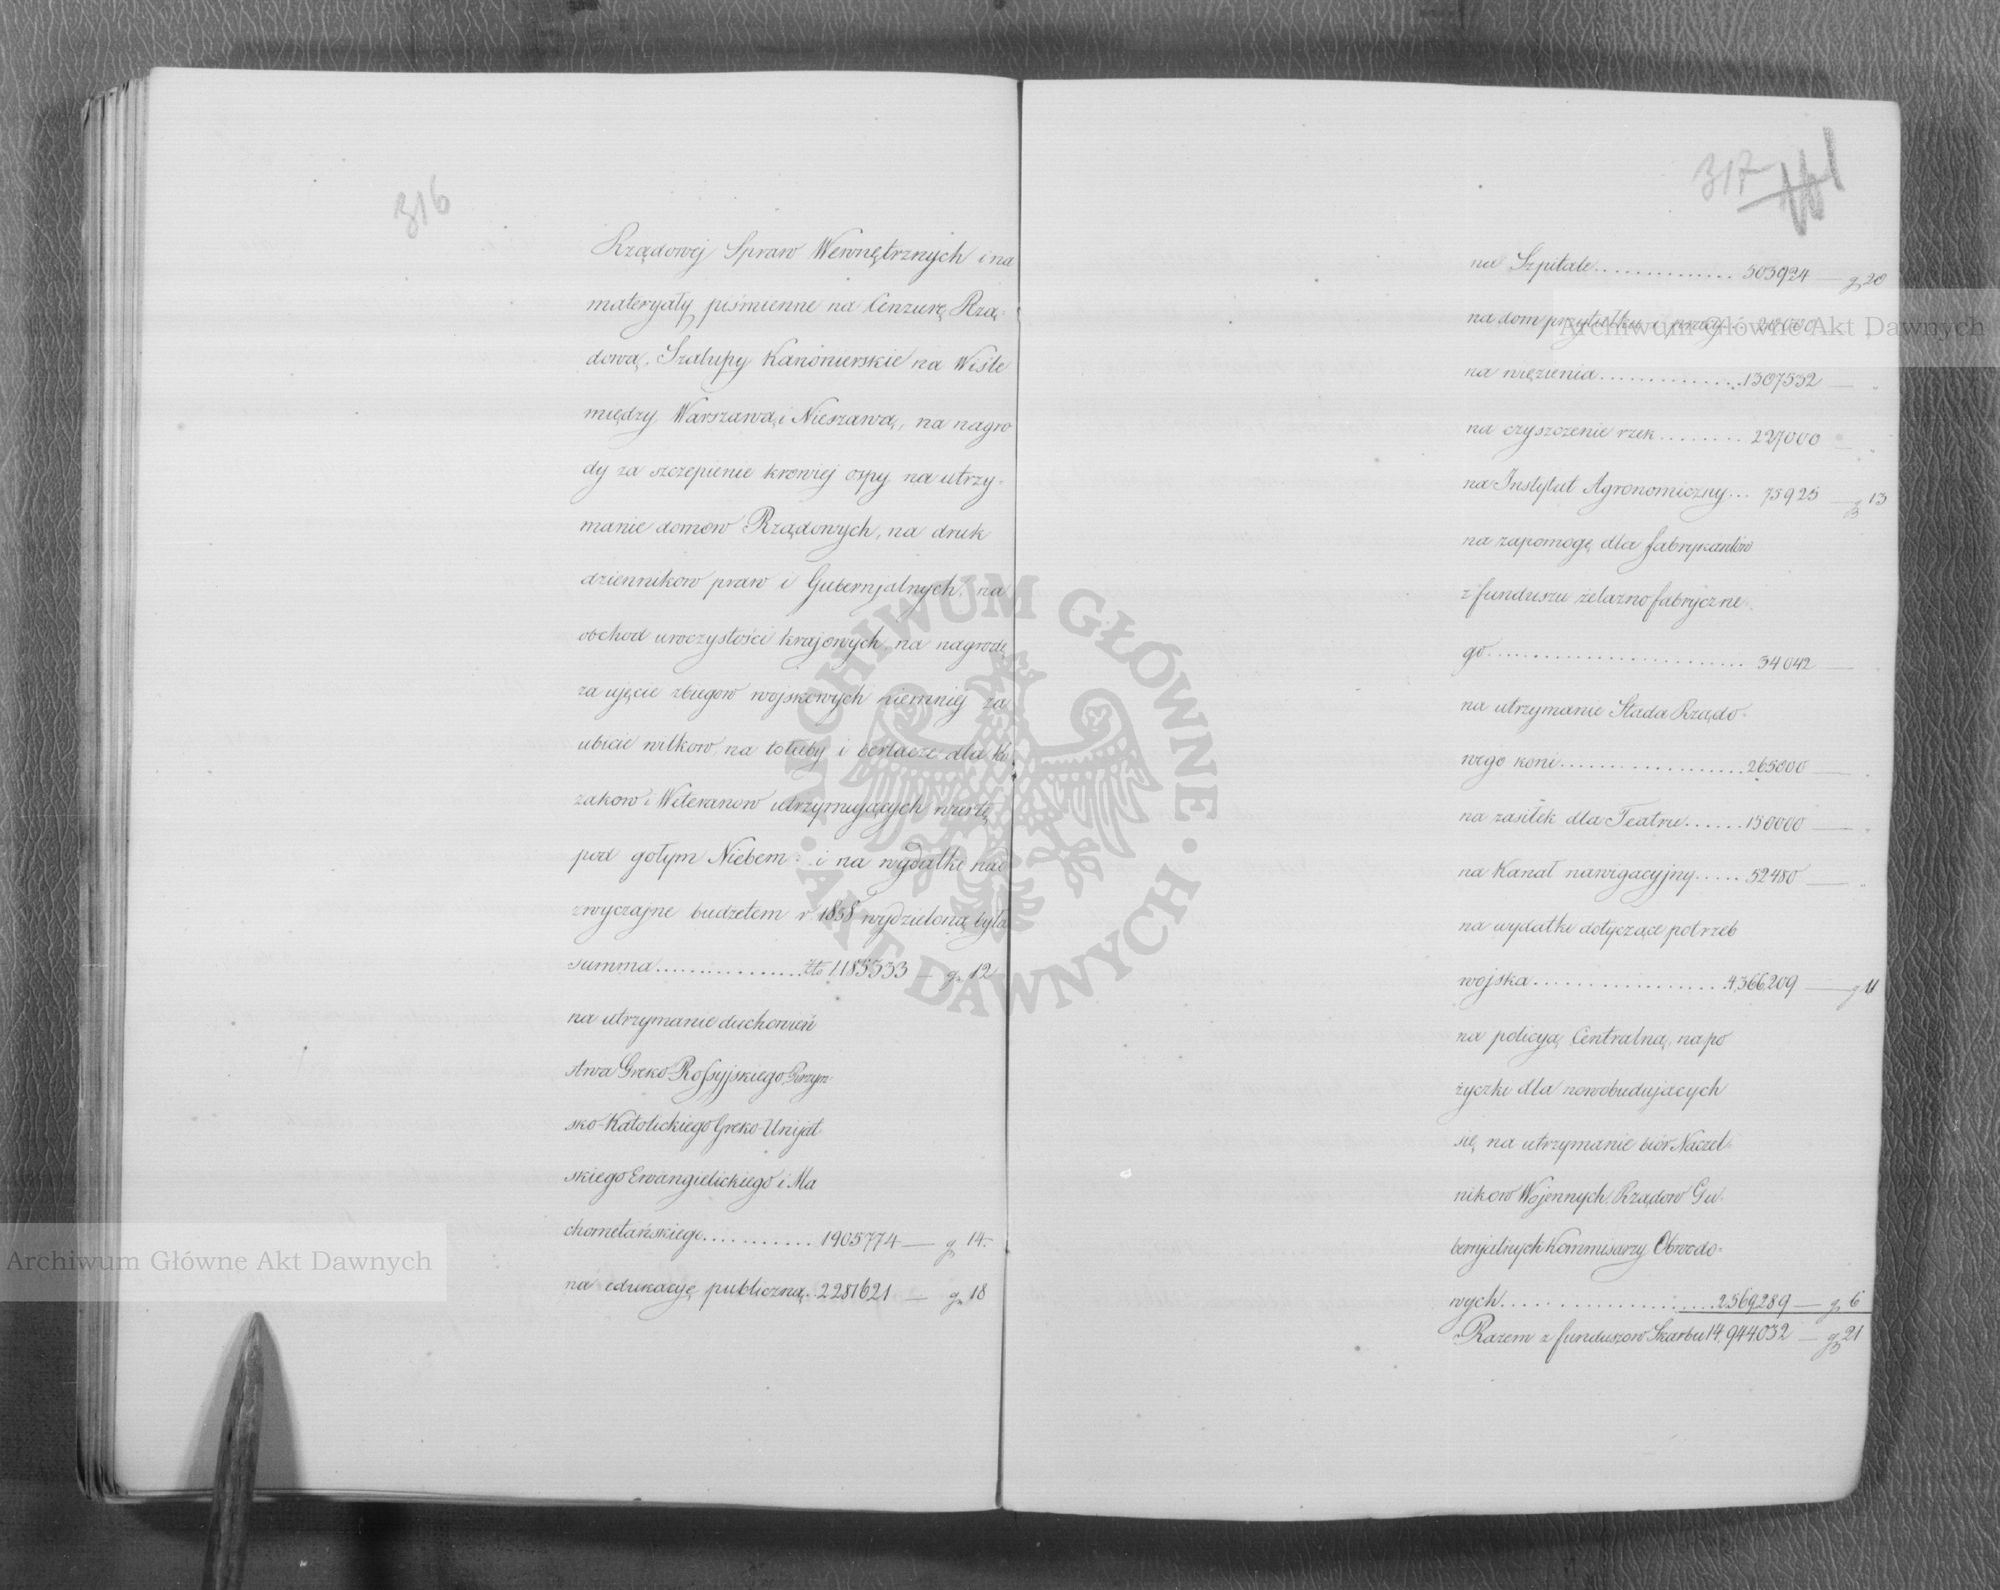 316
Rządowej Spraw Wewnętrznych i na
materyały piśmienne na Cenzurę Rzą-
dową, Szalupy Kanonierskie na Wiśle
między Warszawą i Nieszawą, na nagro
dy za szczepienie krowiej ospy na utrzy-
manie domow Rządowych, na druk
dziennikow praw i Gubernjalnych, na
obchod uroczystości krajowych, na nagrodę
za ujęcie zbiegow wojskowych niemniej za
ubicie wilkow, na tołuby i berlacze dla Ko
zakow i Weteranow utrzymujących wartę
pod gołym Niebem i na wydatki nad
zwyczajne budżetem r 1838 wydzieloną była
summa................złp 1185333 — g. 12
na utrzymanie duchowień
stwa Greko Rossyjskiego, Rzym-
sko-Katolickiego Greko-Unijat
skiego Ewangielickiego i Ma
chometańskiego........... 1905774 — g. 14.
na edukacyę publiczną.. 2281621 — g. 18
317
na Szpitale.............. 503924 — g. 20
na dom przytułku i pracy.. 20000 "
na więzienia..............1307532 — "
na czyszczenie rzek........ 227000 — "
na Instytut Agronomiczny... 75925 — g. 13
na zapomogę dla fabrykantów
z funduszu żelazno fabryczne
go......................... 34042 — "
na utrzymanie Stada Rządo-
wego koni...................265000 — "
na zasiłek dla Teatru......150000 — "
na Kanał nawigacyjny..... 52480 — "
na wydatki dotyczące potrzeb
wojska...................4,366,209 — g. 11
na policyą Centralną, na po
życzki dla nowobudujacych
się na utrzymanie biór Naczel-
nikow Wojennych, Rządow Gu-
bernjalnych Kommisarzy Obwodo-
wych......................2,569,289 — g. 6
Razem z funduszow Skarbu 14,944,032 — g. 21
Archiwum Główne Akt Dawnych
Archiwum Główne Akt Dawnych
ARCHIWUM GŁÓWNE · AKT DAWNYCH ·